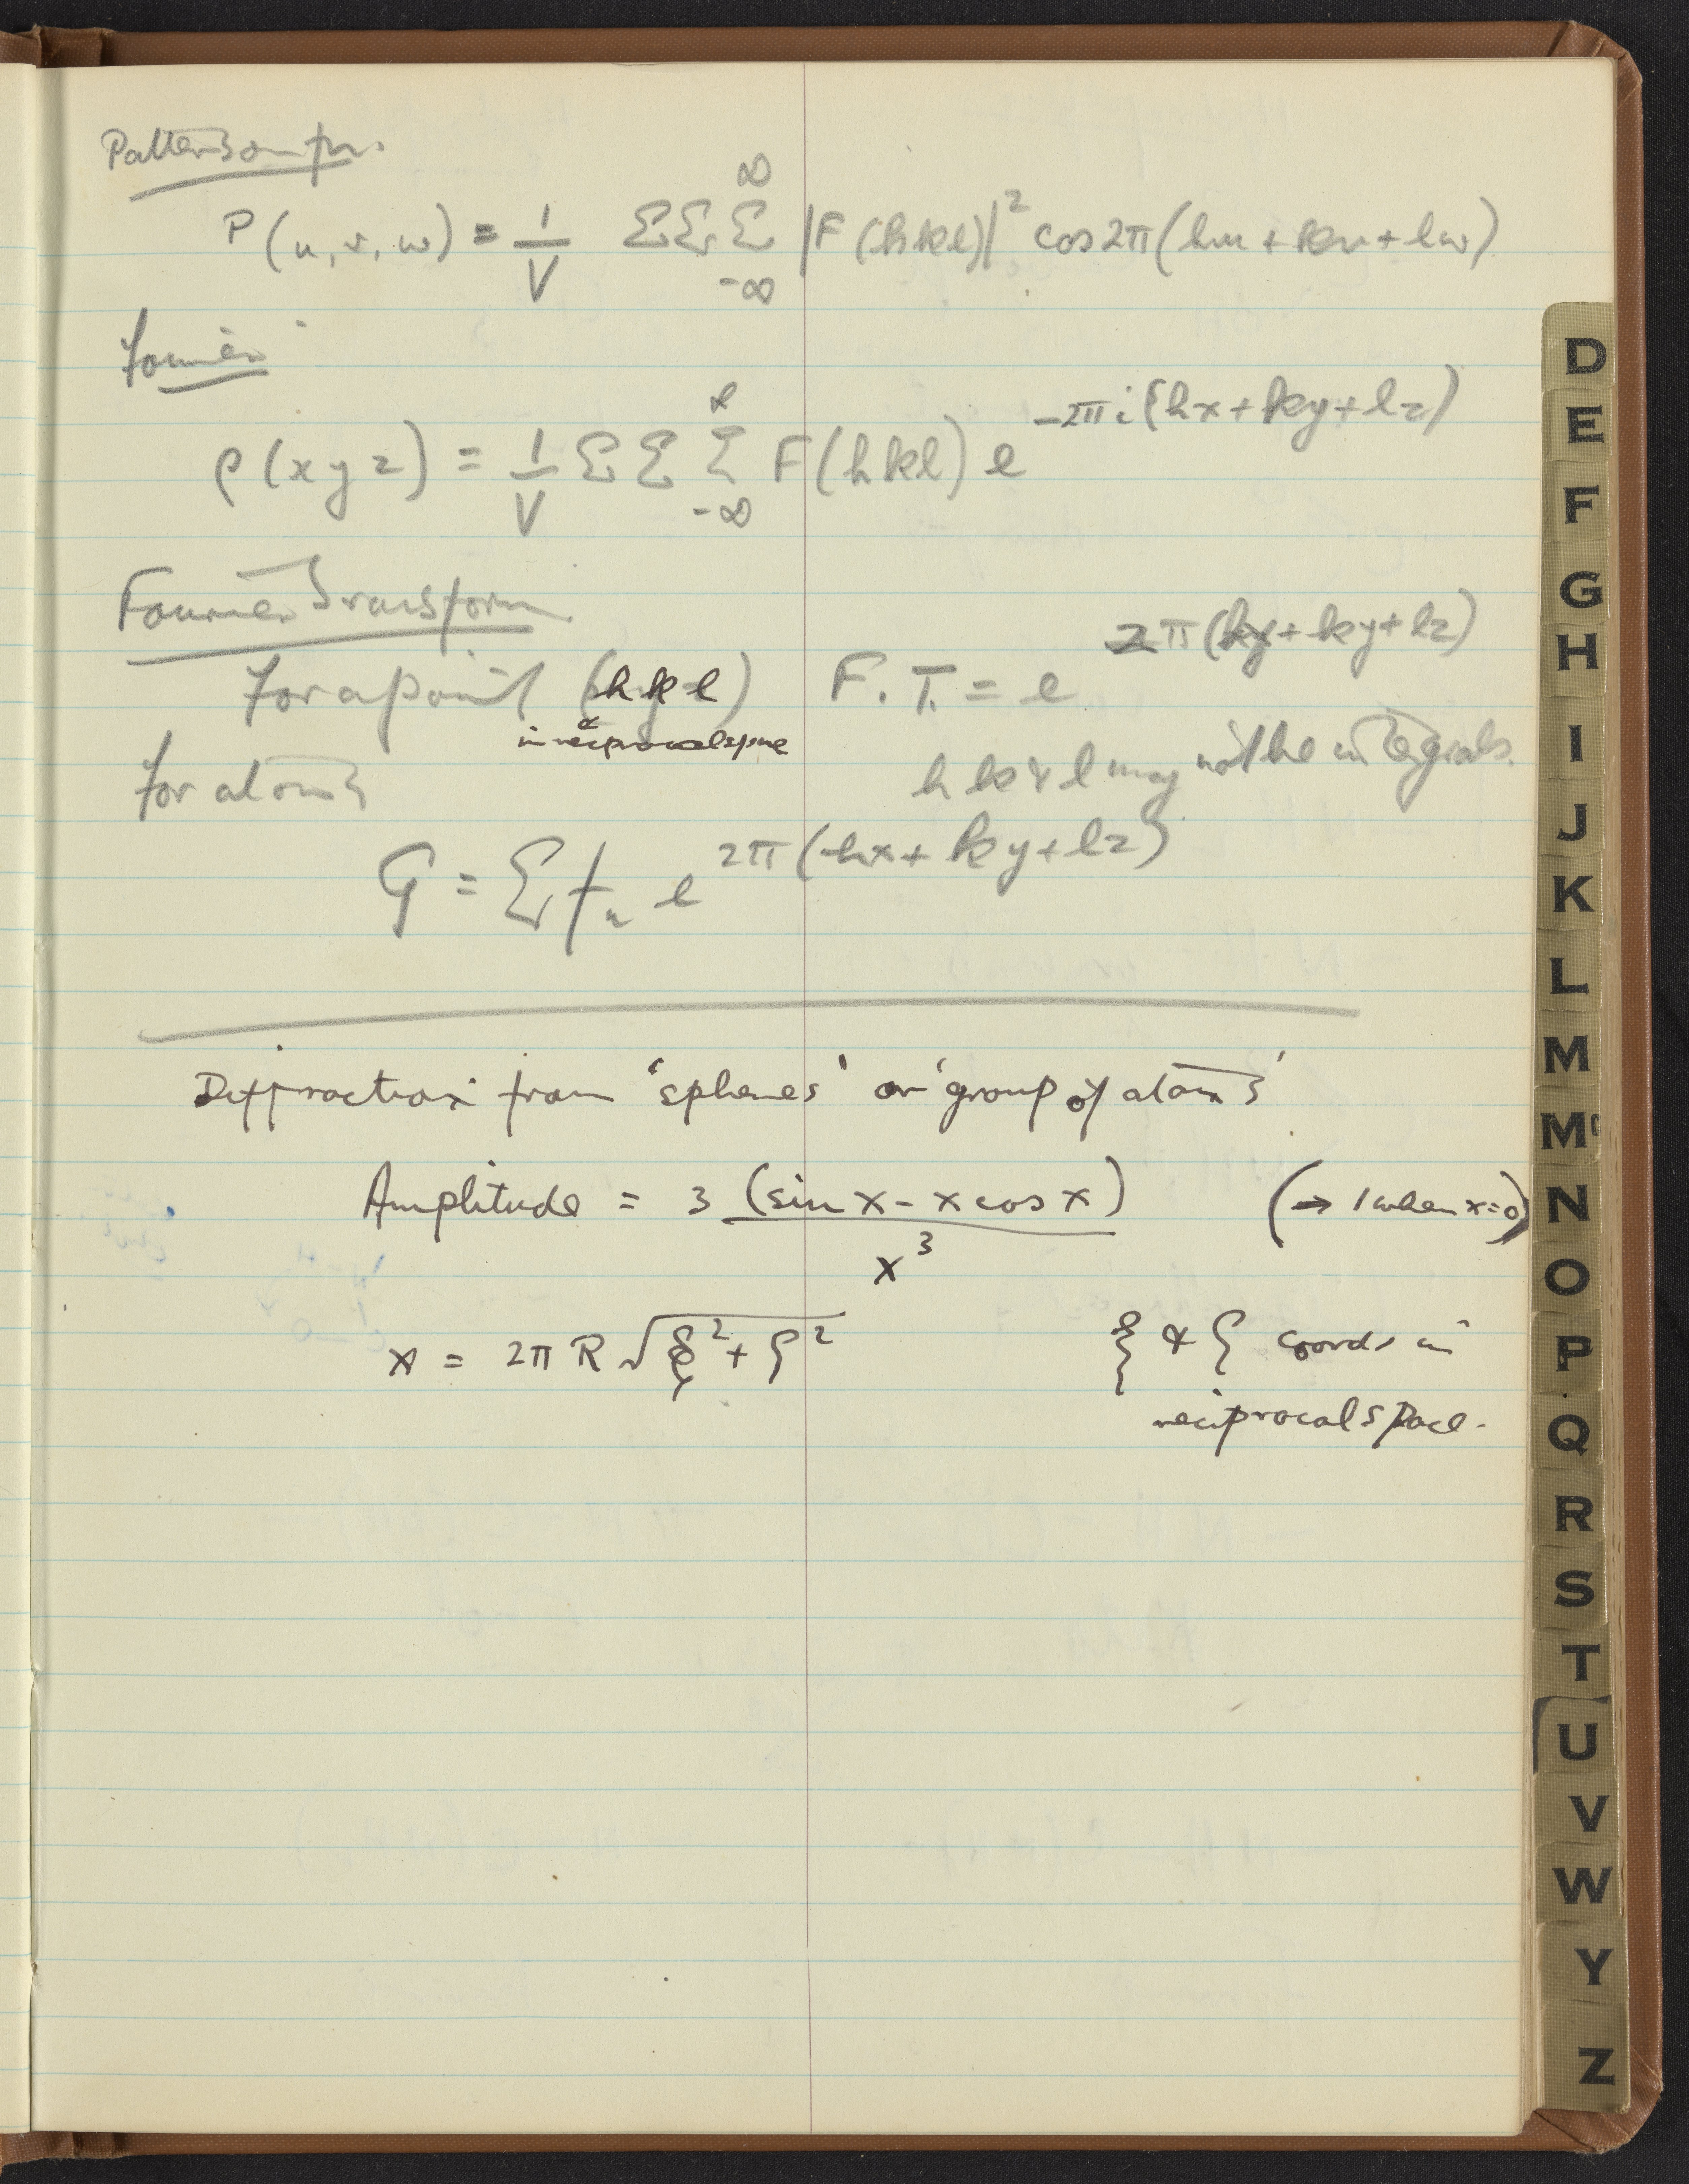 Patterson fn.
P(u,v,w) = 1/V ΣΣΣ ∞ -∞ |F(hkl)|² cos2π(hu+kv+lw)
Fourier
ρ(xyz) = 1/V ΣΣΣ ∞ -∞ F(hkl) e^-2πi(hx+ky+lz)
Fourier Transform
For a point (hkl) F.T. = e^2π(hx+ky+lz)
in reciprocal space
h k & l may not be integrals.
for atoms
G = Σ fn e^2π(hx+ky+lz)
Diffraction from 'spheres' or 'group of atoms'
Amplitude = 3 (sin x - x cos x) / x³ (→ 1 when x=0)
x = 2πR √ξ²+ζ² ξ & ζ coords in
reciprocal space.
D
E
F
G
H
I
J
K
L
M
Mc
N
O
P
Q
R
S
T
U
V
W
Y
Z